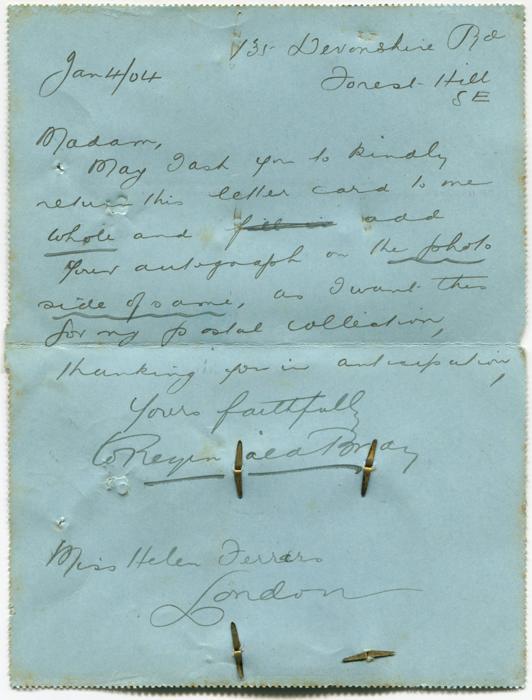 135 Devonshire Rd
Jan 4/04
Forest Hill
SE
Madam,
May I ask you to kindly
return this letter card to me
whole and add
Your autograph on the photo
side of same, as I want this
for my postal collection,
thanking you in anticipation,
Yours faithfully
W Reginald Bray
Miss Helen Ferrers
London